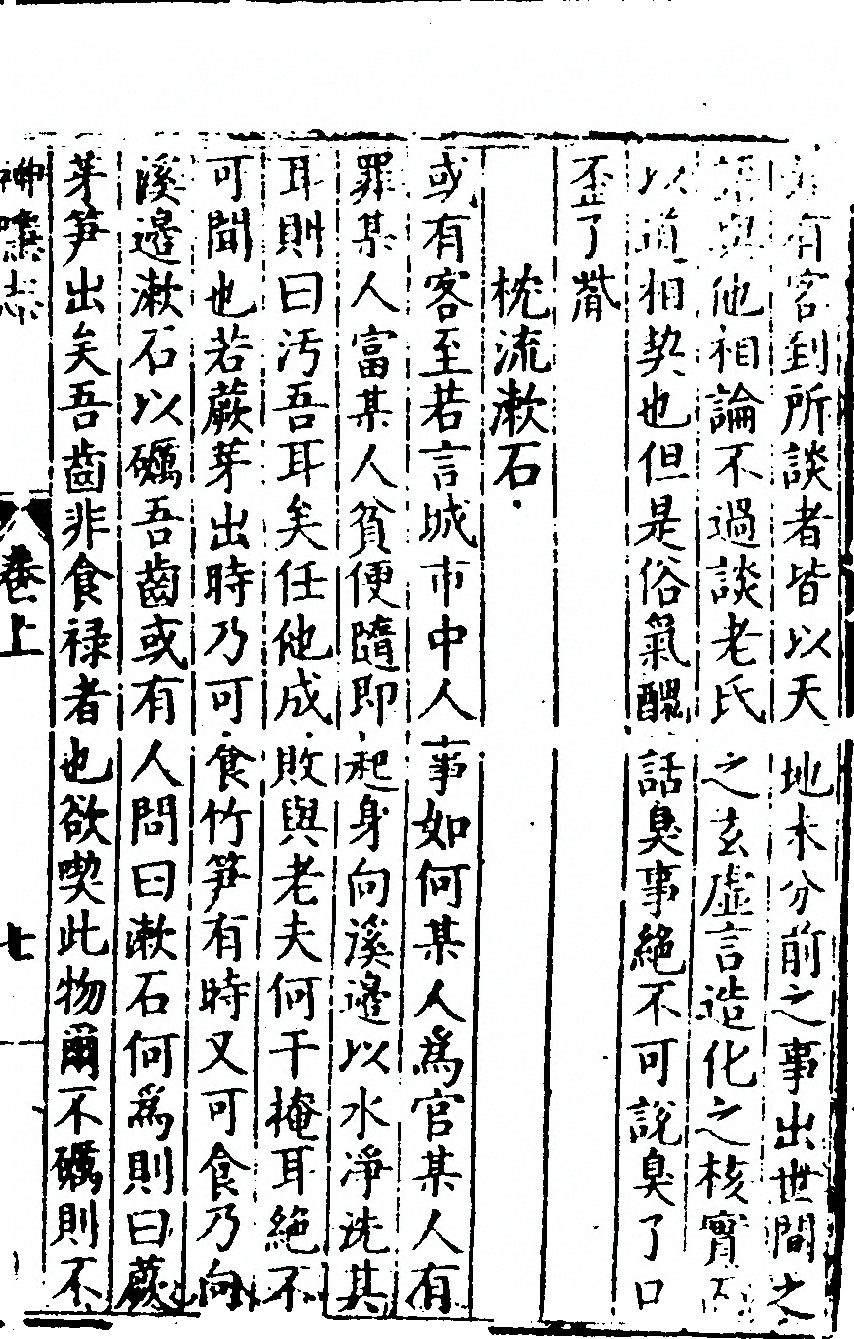 有客到所談者皆以天地未分前之事出世間之
與他相論不過談老氏之玄虛言造化之核實
以道相契也但是俗氣醜話臭事絕不可說臭了口
歪了
枕流漱石
或有客至若言城市中人事如何某人為官某人有
罪某人富某人貧便隨即起身向溪邊以水淨洗其
耳則曰汚吾耳矣任他成敗與老夫何干掩耳絕不
可聞也若蕨芽出時乃可食竹笋有時又可食乃向
溪邊漱石以礪吾齒或有人問曰漱石何為則曰蕨
芽笋出矣吾齒非食祿者也欲喫此物爾不礪則不
神隱志 卷上 七